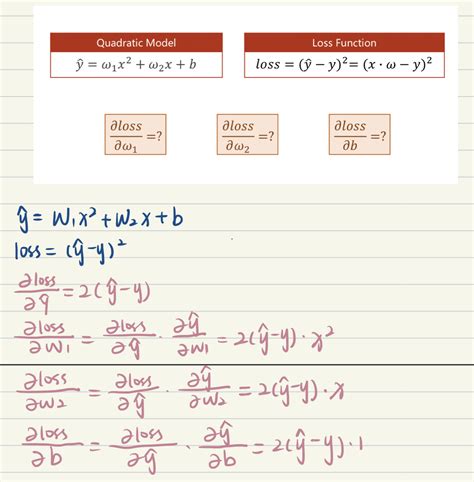 Quadratic Model
ŷ = ω₁x² + ω₂x + b
Loss Function
loss = (ŷ − y)² = (x · ω − y)²
∂loss/∂ω₁ =?
∂loss/∂ω₂ =?
∂loss/∂b =?
ŷ = W₁x² + W₂x + b
loss = (ŷ-y)²
∂loss/∂ŷ = 2(ŷ-y)
∂loss/∂W₁ = ∂loss/∂ŷ · ∂ŷ/∂W₁ = 2(ŷ-y) · x²
∂loss/∂W2 = ∂loss/∂ŷ · ∂ŷ/∂W₂ = 2(ŷ-y) · x
∂loss/∂b = ∂loss/∂ŷ · ∂ŷ/∂b = 2(ŷ-y) · 1